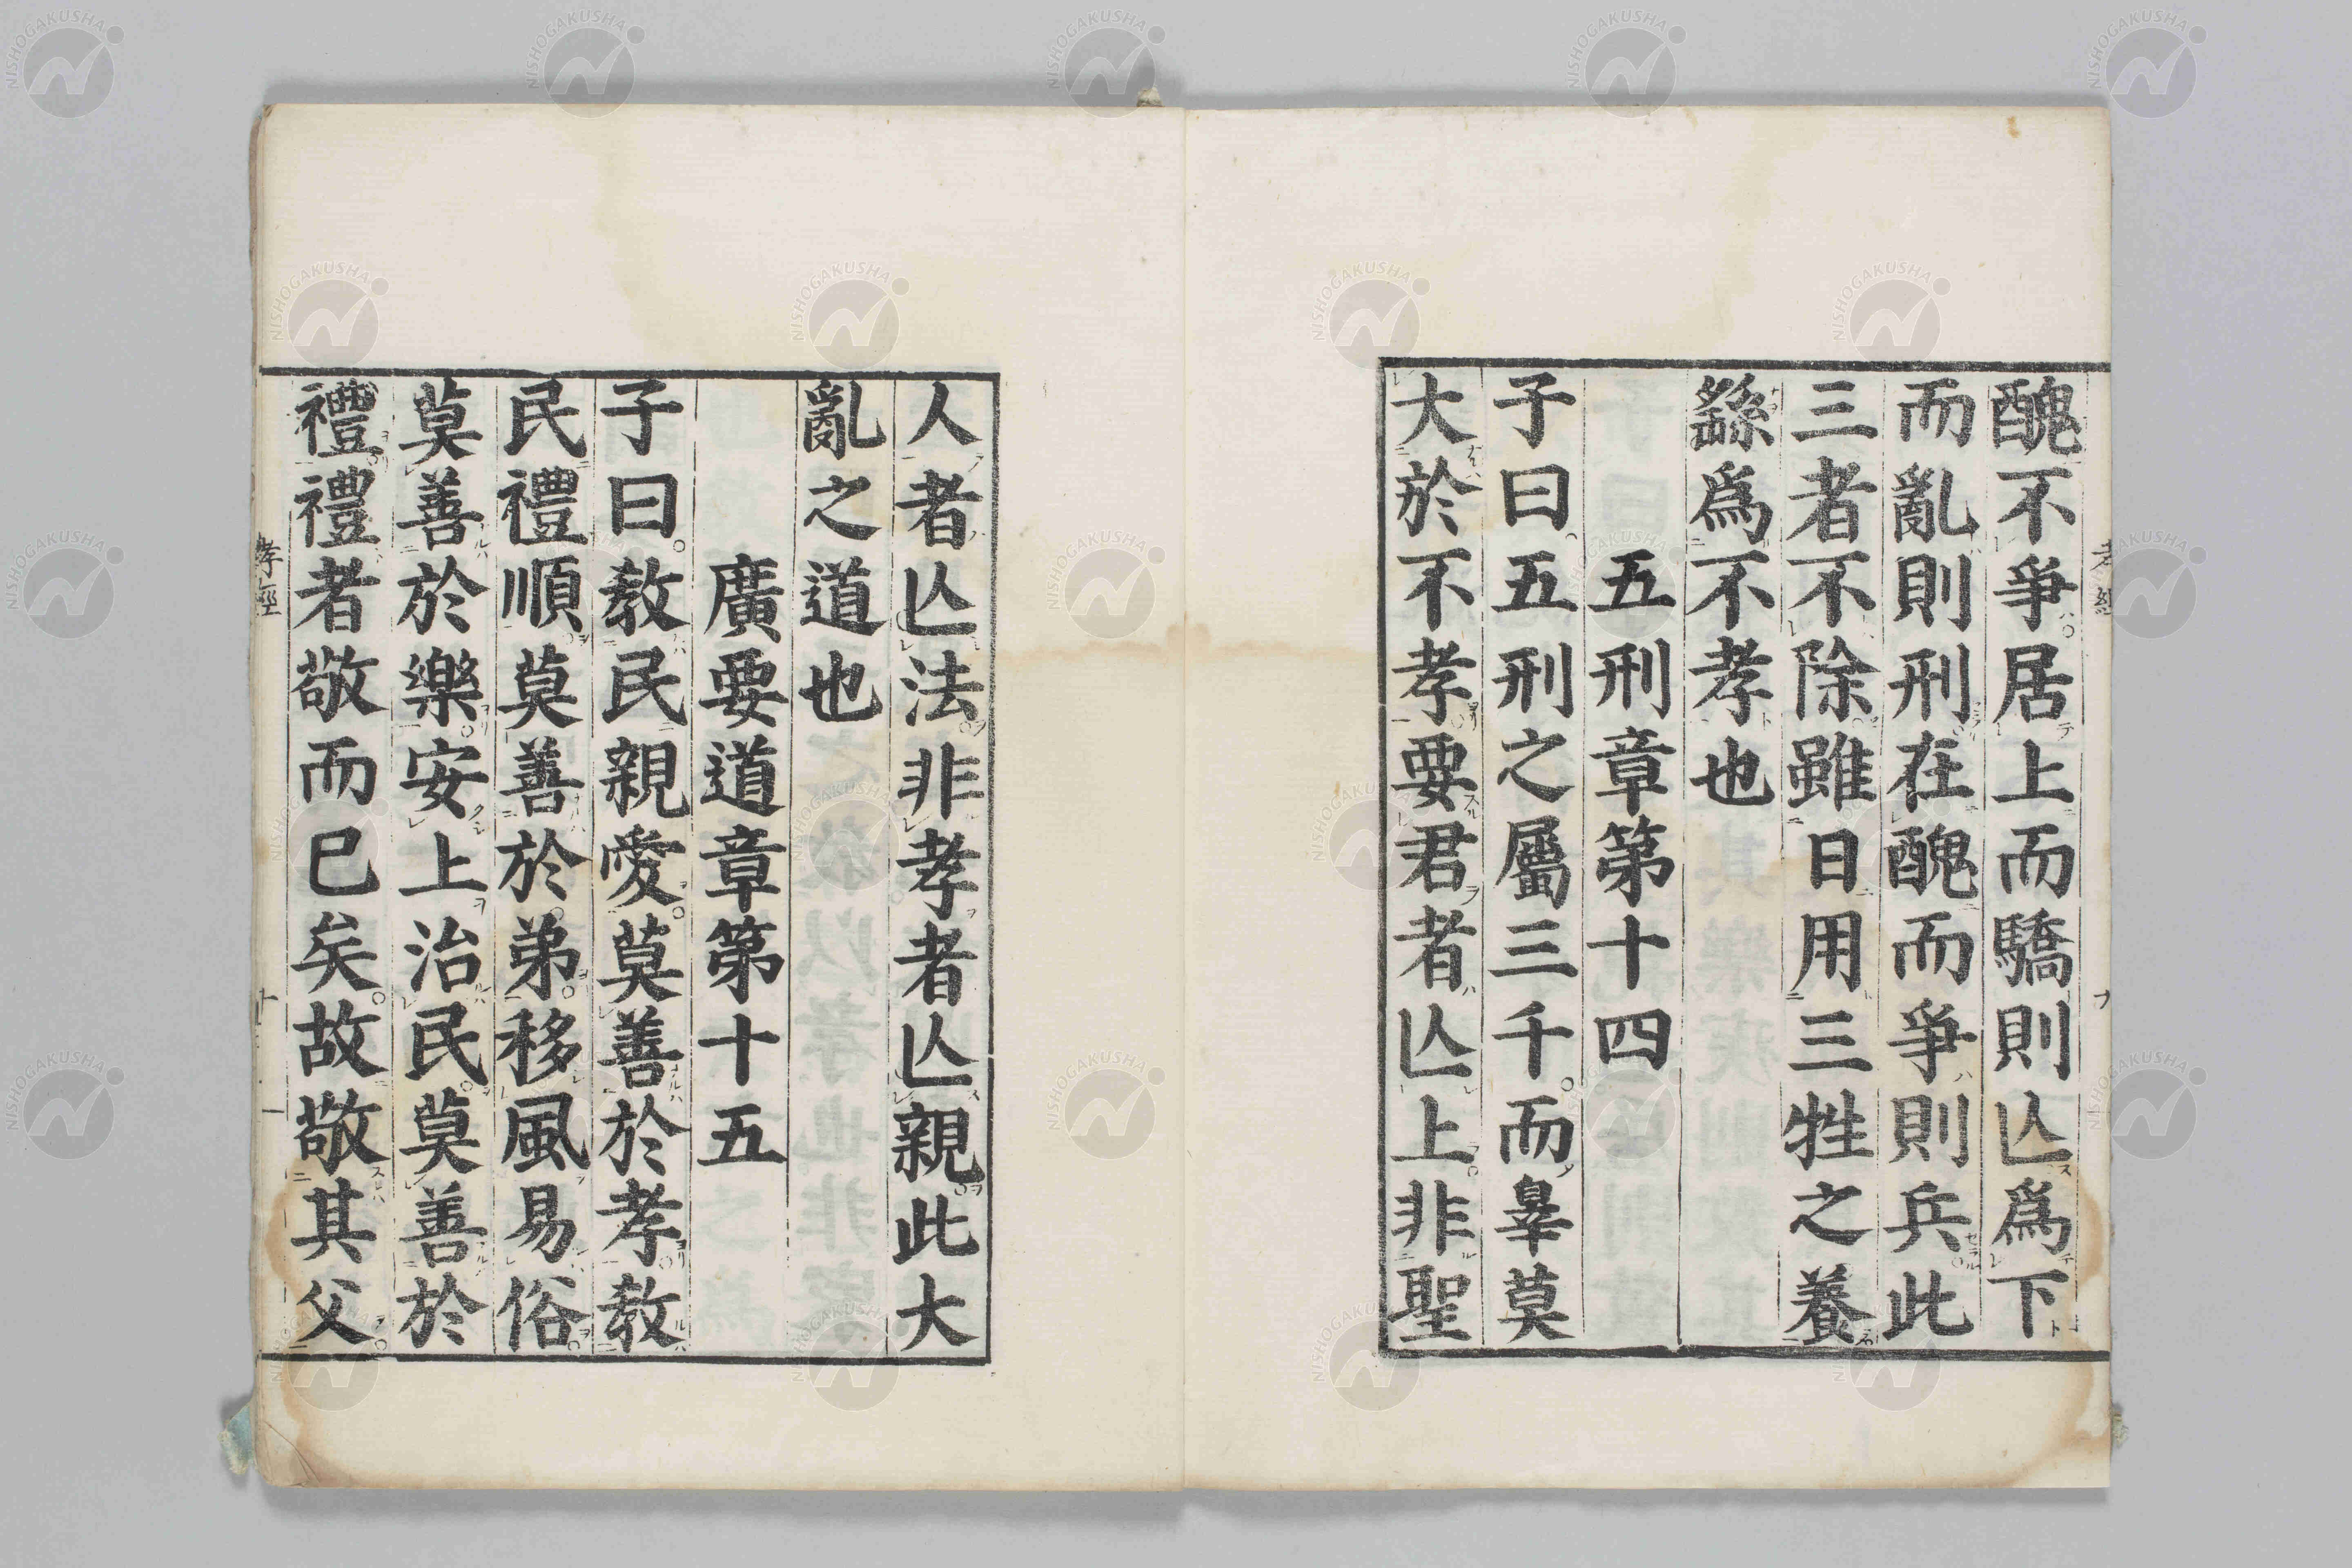 醜不爭居上而驕則亾爲下
而亂則刑在醜而爭則兵此
三者不除雖日用三牲之養
繇爲不孝也
五刑章第十四
子曰五刑之屬三千而辠莫
大於不孝要君者亾上非聖
人者亾法非孝者亾親此大
亂之道也
廣要道章第十五
子曰教民親愛莫善於孝教
民禮順莫善於弟移風易俗
莫善於樂安上治民莫善於
禮禮者敬而已矣故敬其父
孝經
NISHOGAKUSHA